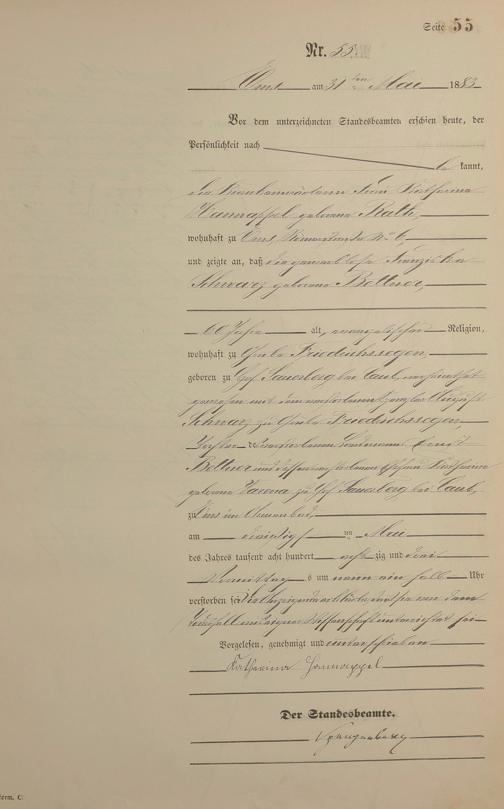 Seite 55
Nr. 55
Ems am 31ten Mai 1883
Vor dem unterzeichneten Standesbeamten erschien heute, der
Persönlichkeit nach
kannt,
die Krankenwärterin Frau Katharina
Hannappel geborene Rath,
wohnhaft zu Ems, Römerstraße No 6,
und zeigte an, daß die gewerblose Franziska
Schwarz geborene Bellner,
60 Jahre alt, evangelischer Religion,
wohnhaft zu Grube Friedrichssegen,
geboren zu Hof Sauerberg bei Caub, verheirathet
gewesen mit dem verstorbenen August
Schwarz zu Grube Friedrichssegen,
Tochter des verstorbenen Ernst
Bellner und dessen verstorbenen Ehefrau Katharina
geborene zu Hof Sauerberg bei Caub,
zu Ems im
am dreißigsten Mai
des Jahres tausend acht hundert achtzig und drei
Vormittags um neun ein halb Uhr
verstorben sei
Vorgelesen, genehmigt und unterschrieben
Katharina Hannappel
Der Standesbeamte.
Form. C.